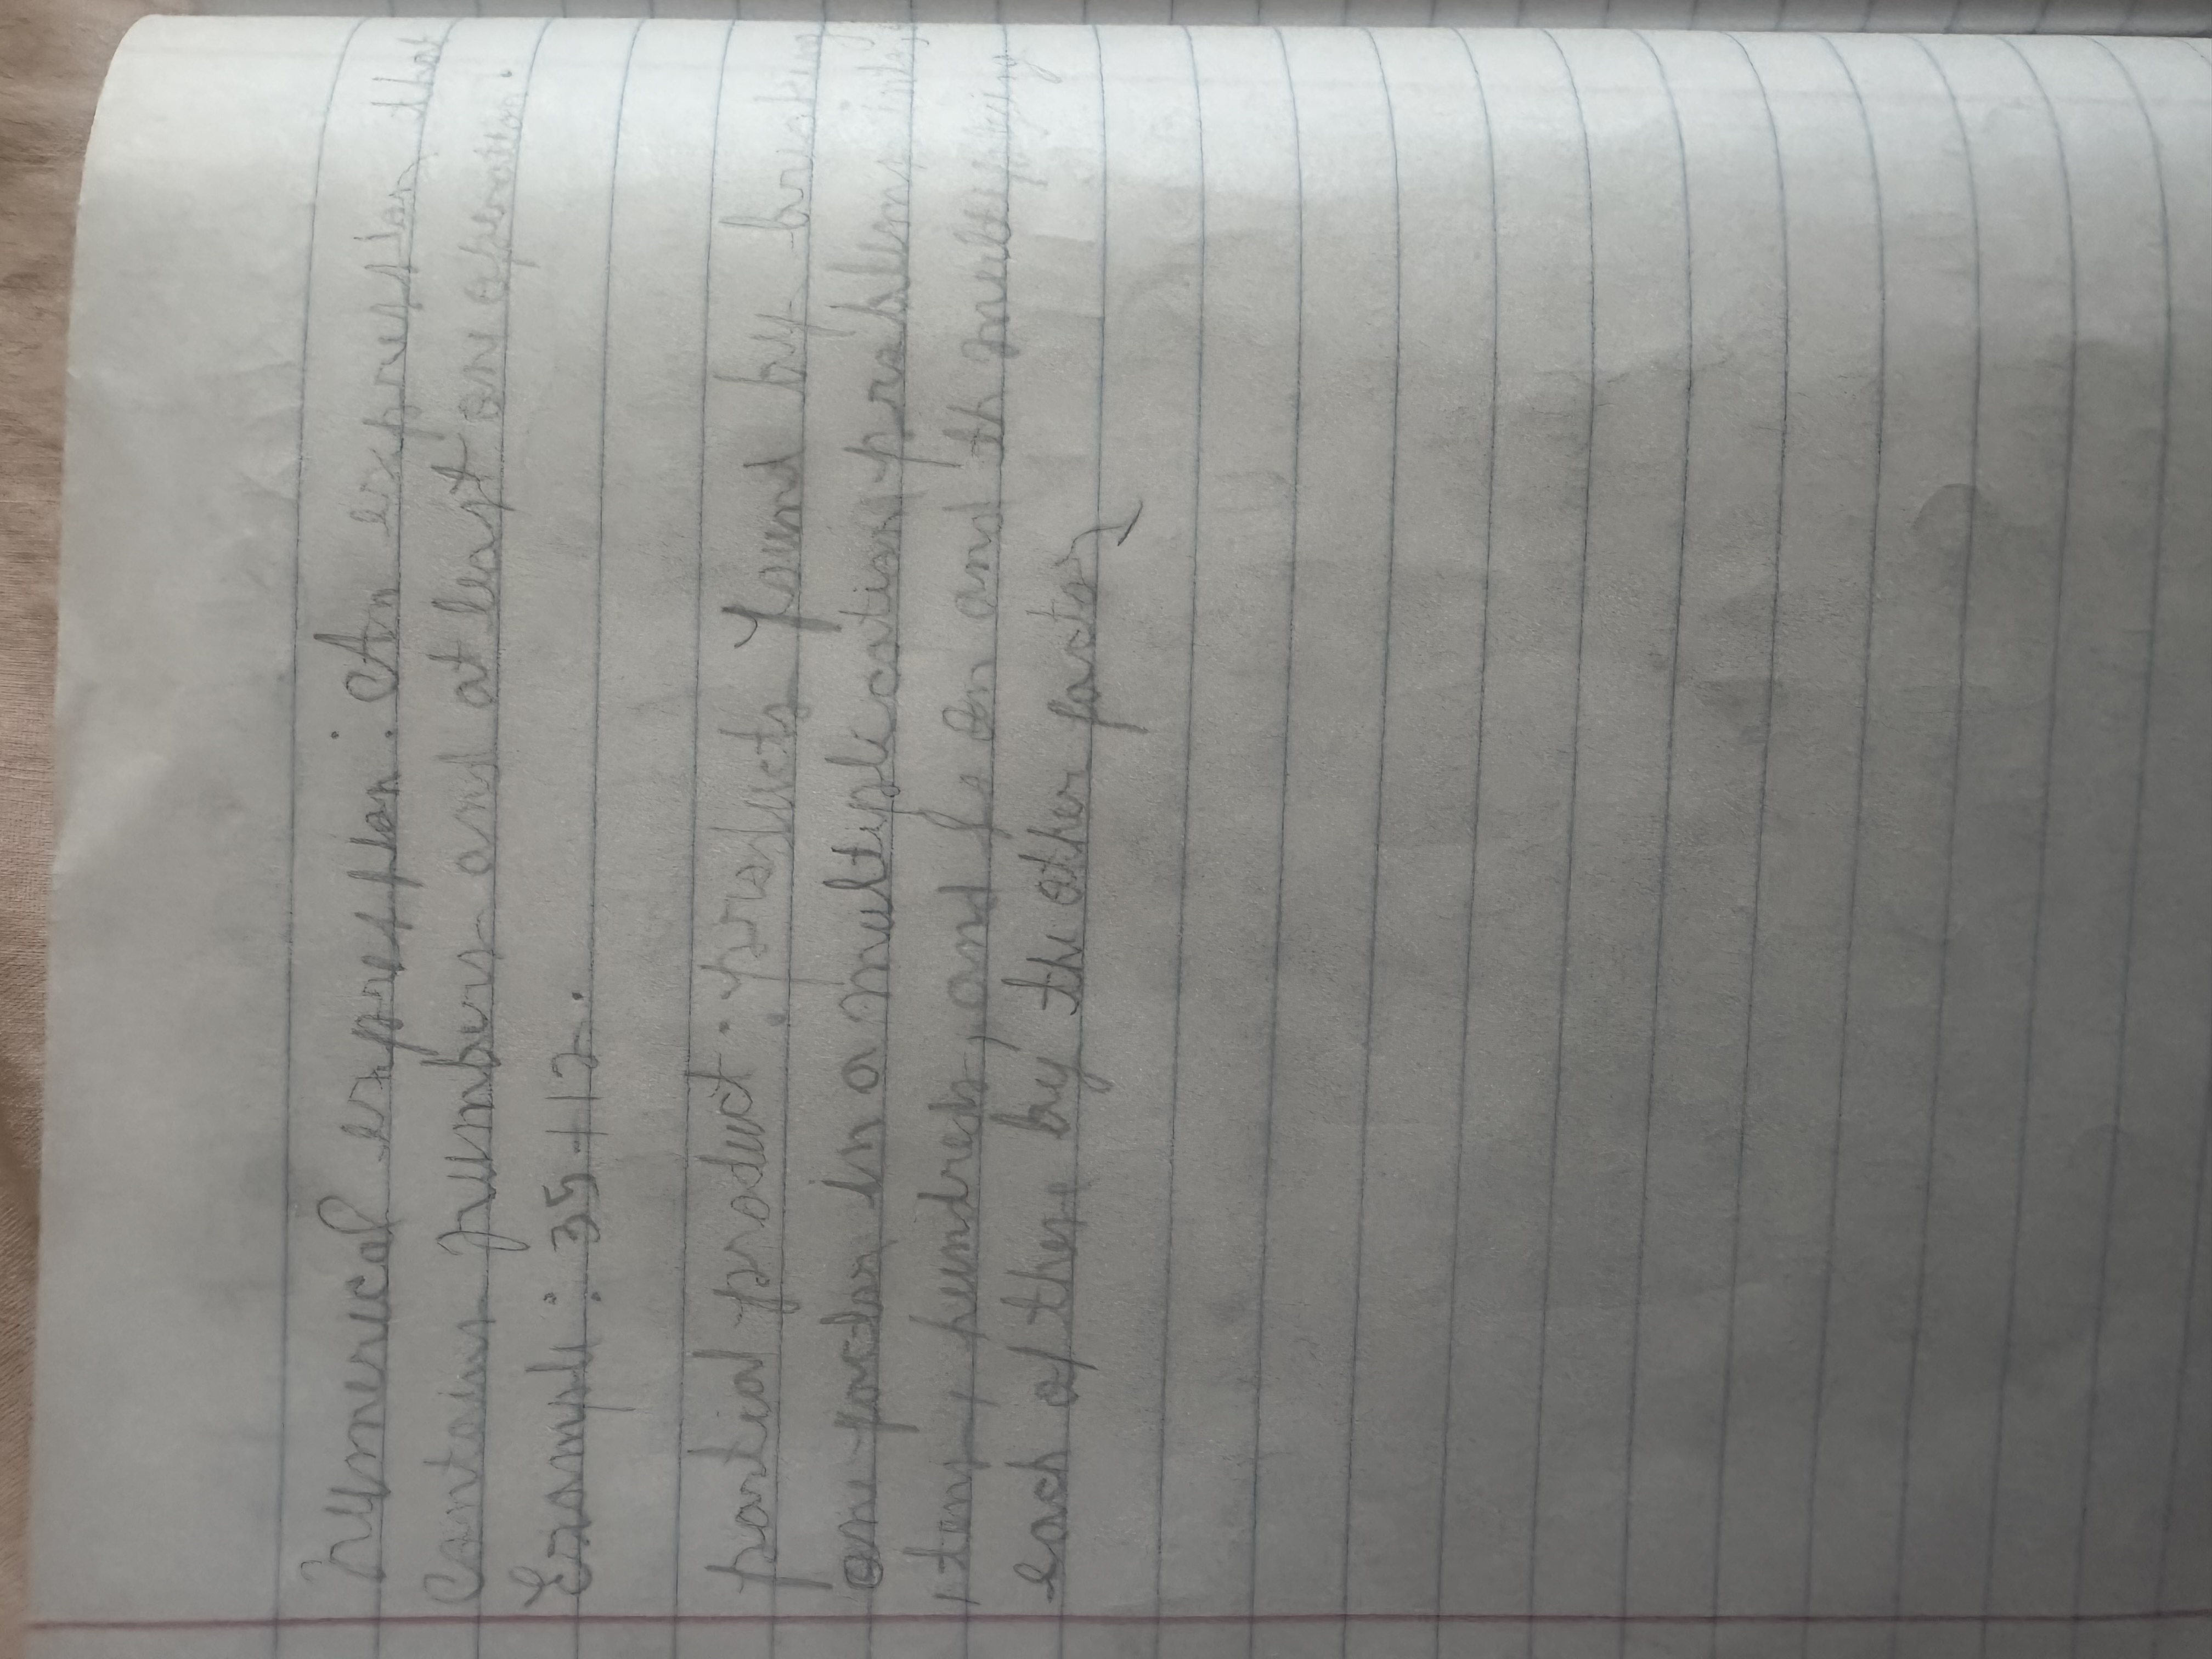 Numerical expression: An expression that
Contains numbers and at least one operation.
Example: 35+12.
partial product: products found by breaking
one factor in a multiplication problem into
tens, hundreds, and so on and th multiplying
each of these by the other factor